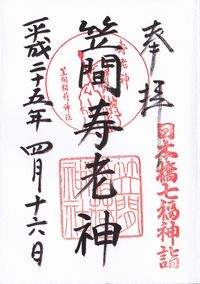 奉拝
日本橋七福神詣
笠間寿老神
寿老神
笠間稲荷神社
平成二十五年 四月十六日